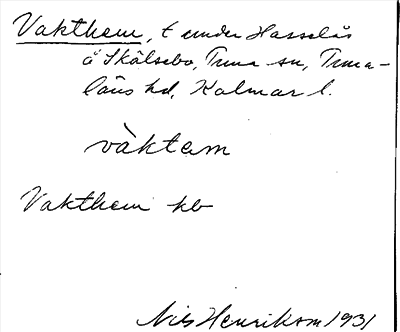 Vakthem, t under Hasselås
å Skälsebo, Tuna sn, Tuna-
läns hd, Kalmar l.
vàktem
Vakthem kb
Nils Henrikson 1931